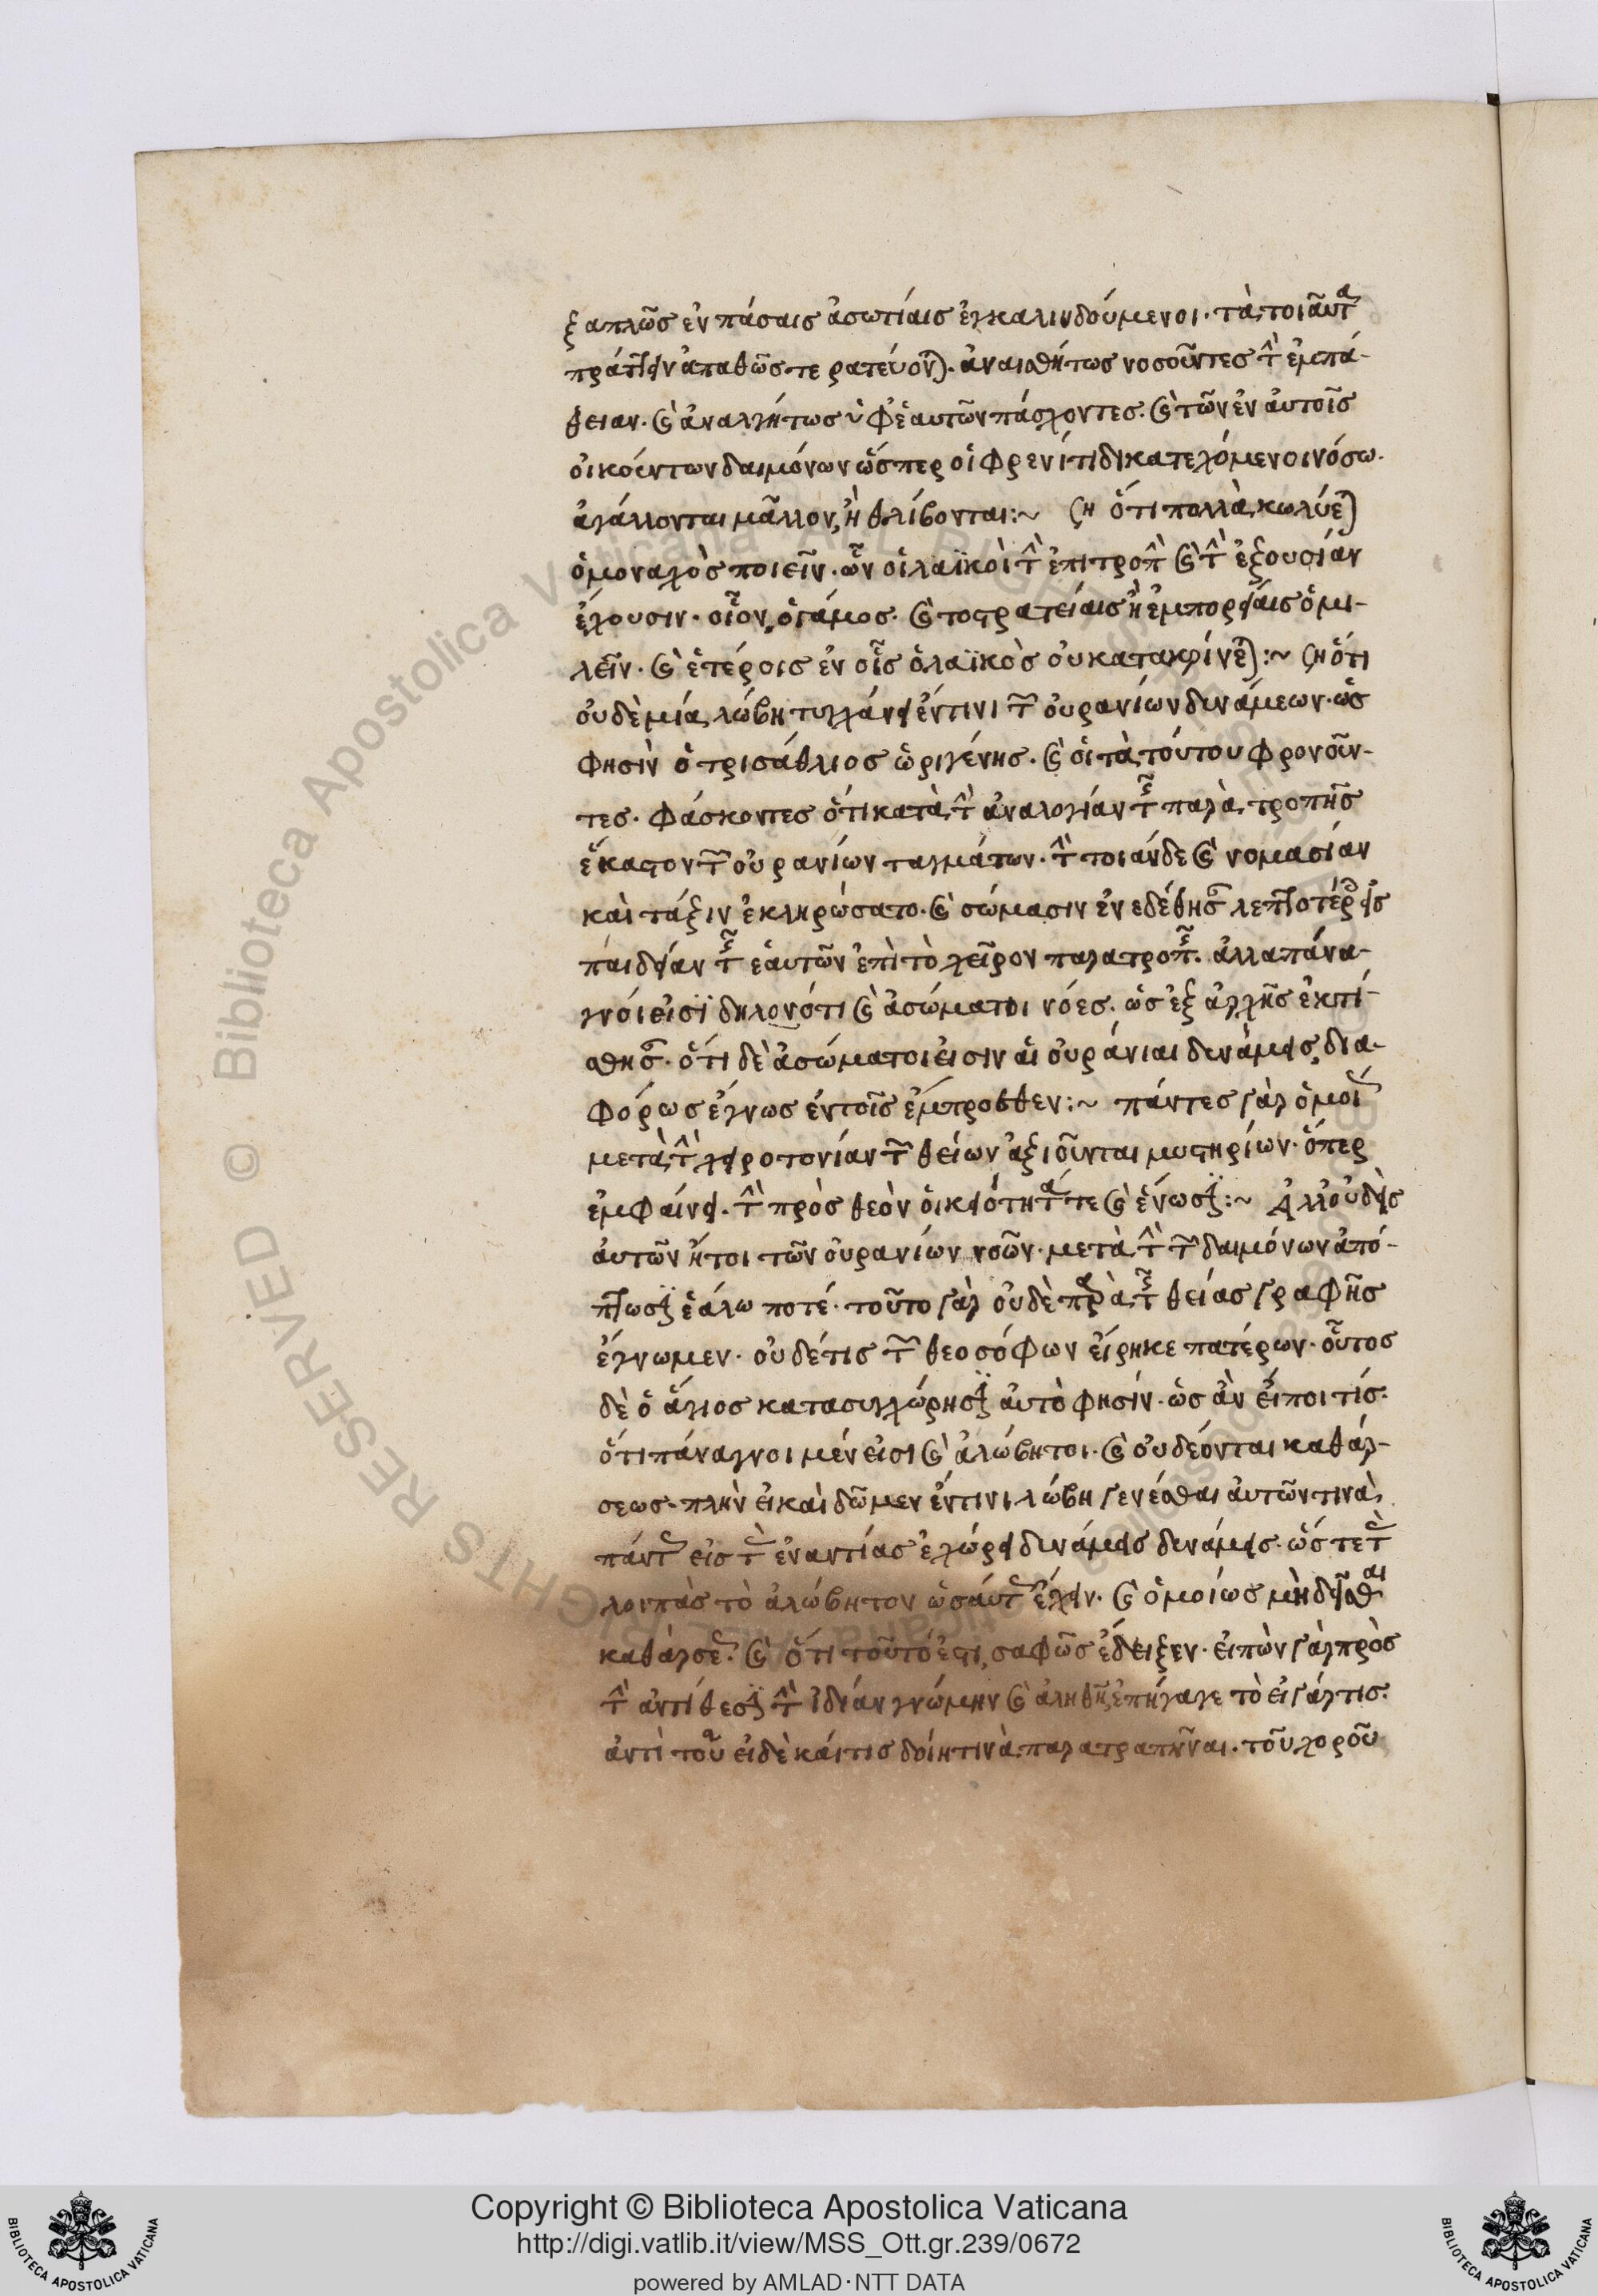 ξ ἁπλῶς ἐν πάσαις ἀσωτίαις ἐγκαλινδούμενοι· τὰ τοιαῦτα
πράττειν ἀπαθῶς τερατεύονται· ἀναισθήτως νοσοῦντες τὴν ἐμπά-
θειαν· καὶ ἀναλγήτως ὑφ' ἑαυτῶν πάσχοντες· καὶ τῶν ἐν αὐτοῖς
οἰκούντων δαιμόνων ὥσπερ οἱ φρενίτιδι κατεχόμενοι νόσω·
ἀγάλλονται μᾶλλον, ἢ θλίβονται:~ ση ὅτι πολλὰ κωλύεται
ὁ μοναχὸς ποιεῖν· ὧν οἱ λαϊκοὶ τὴν ἐπιτροπὴν καὶ τὴν ἐξουσίαν
ἔχουσιν· οἷον, ὁ γάμος· καὶ τὸ στρατείαις ἢ ἐμπορείαις ὁμι-
λεῖν· καὶ ἑτέροις ἐν οἷς ὁ λαϊκὸς οὐ κατακρίνεται:~ ση ὅτι
οὐδὲ μία λώβη τυγχάνει ἔν τινι τῶν οὐρανίων δυνάμεων· ὡς
φησὶν ὁ τρισάθλιος ὠριγένης· καὶ οἱ τὰ τούτου φρονοῦν-
τες· φάσκοντες ὅτι κατὰ τὴν ἀναλογίαν τῆς παρατροπῆς
ἕκαστον τῶν οὐρανίων ταγμάτων· τὴν τοιάνδε καὶ νομασίαν
καὶ τάξιν ἐκληρώσατο· καὶ σώμασιν ἐνεδέθησαν λεπτοτέροις εἰς
παιδείαν τῆς ἑαυτῶν ἐπὶ τὸ χεῖρον παρατροπῆς· ἀλλὰ πάνα-
γνοί εἰσι δηλονότι καὶ ἀσώματοι νόες· ὡς ἐξ ἀρχῆς ἐκτί-
σθησαν· ὅτι δὲ ἀσώματοι εἰσιν αἱ οὐράνιαι δυνάμεις, δια-
φόρως ἔγνως ἐν τοῖς ἔμπροσθεν:~ πάντες γὰρ ὁμοίως
μετὰ τὴν χειροτονίαν τῶν θείων ἀξιοῦνται μυστηρίων· ὅπερ
ἐμφαίνει· τὴν πρὸς θεὸν οἰκειότητά τε καὶ ἕνωσιν:~ Ἀλλ' οὐδεὶς
αὐτῶν ἤτοι τῶν οὐρανίων νοῶν· μετὰ τὴν τῶν δαιμόνων ἀπό-
πτωσιν ἑάλω ποτέ· τοῦτο γὰρ οὐδὲ παρὰ τῆς θείας γραφῆς
ἔγνωμεν· οὐδέ τις τῶν θεοσόφων εἴρηκε πατέρων· οὗτος
δὲ ὁ ἅγιος κατὰ συγχώρησιν αὐτὸ φησίν· ὡς ἂν εἴποι τίς·
ὅτι πάναγνοι μέν εἰσι καὶ ἀλώβητοι· καὶ οὐ δέονται καθάρ-
σεως· πλὴν εἰ καὶ δῶμεν ἔν τινι λώβη γενέσθαι αὐτῶν τινὰ,
πάντως εἰς τὰς ἐναντίας ἐχώρει δυνάμεις δυνάμεις· ὥστε τὰς
λοιπὰς τὸ ἀλώβητον ὡσαύτως ἔχειν· καὶ ὁμοίως μὴ δεῖσθαι
καθάρσεως· καὶ ὅτι τοῦτό ἐστι, σαφῶς ἔδειξεν· εἰπὼν γὰρ πρὸς
τὴν ἀντίθεσιν τὴν ἰδίαν γνώμην καὶ ἀληθῆ ἐπήγαγε τὸ εἰ γάρ τις·
ἀντὶ τοῦ εἰ δὲ καί τις δοίη τινὰ παρατραπῆναι· τοῦ χοροῦ
Copyright © Biblioteca Apostolica Vaticana
http://digi.vatlib.it/view/MSS_Ott.gr.239/0672
powered by AMLAD·NTT DATA